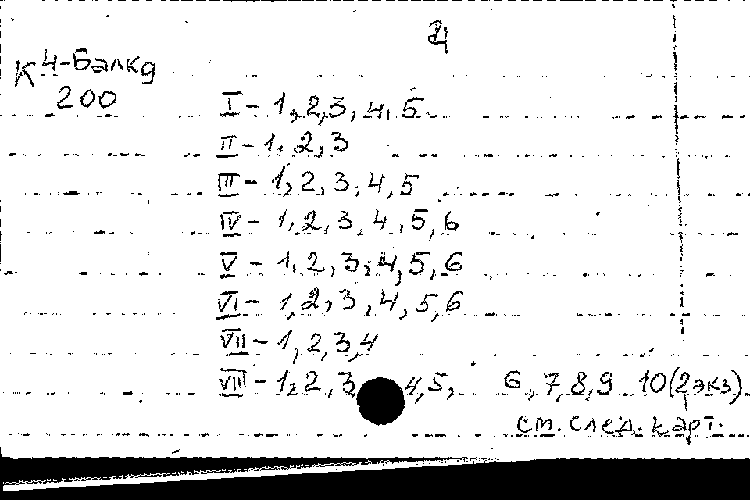 К 4-Балкд
200
I - 1, 2, 3, 4, 5
II - 1, 2, 3
III - 1, 2, 3, 4, 5
IV - 1, 2, 3, 4, 5, 6
V - 1, 2, 3, 4, 5, 6
VI - 1, 2, 3, 4, 5, 6
VII - 1, 2, 3, 4
VIII - 1, 2, 3, 4, 5, 6, 7, 8, 9 10 (2 экз)
см. след. карт.